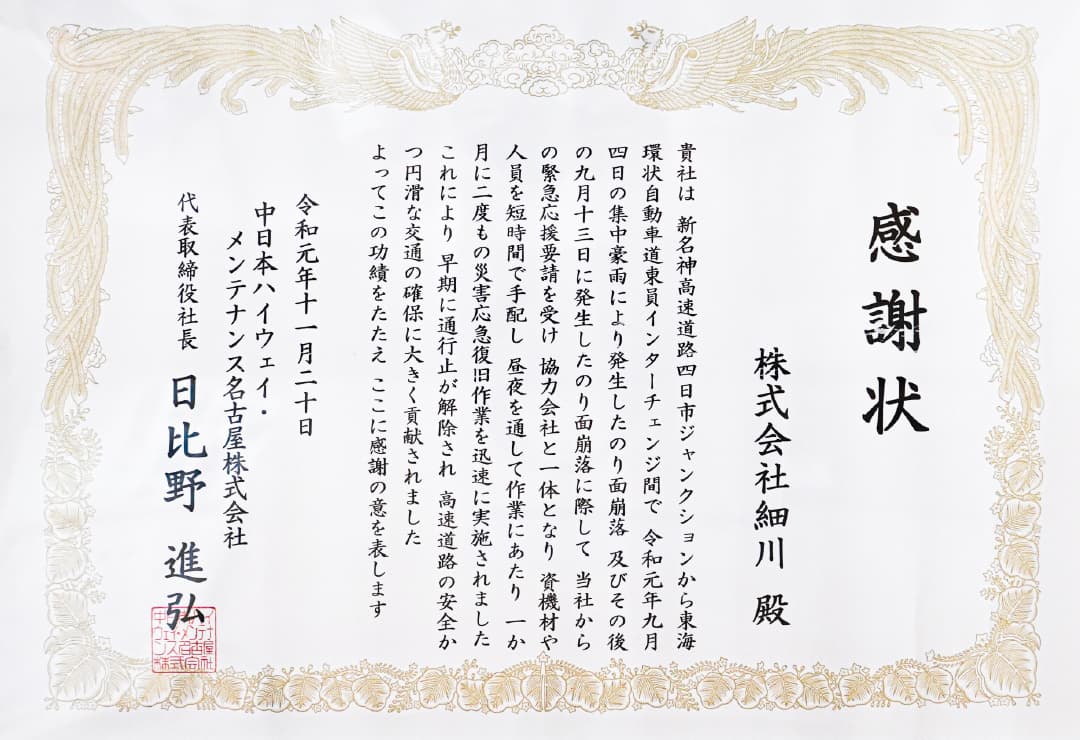 感謝状
株式会社細川 殿
貴社は 新名神高速道路四日市ジャンクションから東海
環状自動車道東員インターチェンジ間で 令和元年九月
四日の集中豪雨により発生したのり面崩落 及びその後
の九月十三日に発生したのり面崩落に際して 当社から
の緊急応援要請を受け 協力会社と一体となり 資機材や
人員を短時間で手配し 昼夜を通して作業にあたり 一か
月に二度もの災害応急復旧作業を迅速に実施されました
これにより 早期に通行止が解除され 高速道路の安全か
つ円滑な交通の確保に大きく貢献されました
よってこの功績をたたえ ここに感謝の意を表します
令和元年十一月二十日
中日本ハイウェイ・
メンテナンス名古屋株式会社
代表取締役社長 日比野 進弘